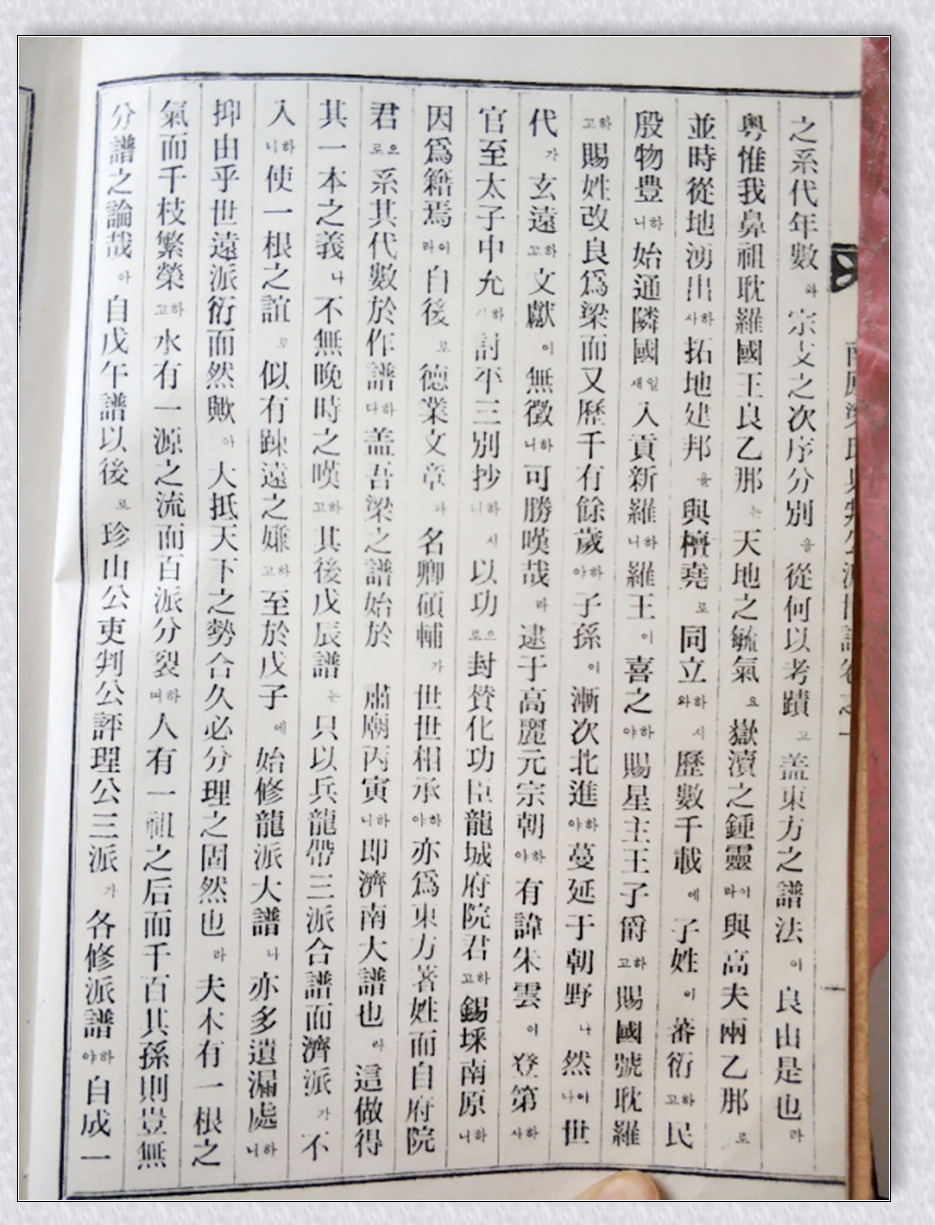 之系代年數와宗支之次序分別을從何以考蹟고盖東方之譜法이良山是也라
粤惟我鼻祖耽羅國王良乙那는天地之毓氣요嶽瀆之鍾靈이라與高夫兩乙那로
並時從地湧出하사拓地建邦을與檀堯로同立하와시歷數千載에子姓이蕃衍하고民
殷物豊하니始通隣國일새入貢新羅하니羅王이喜之하야賜星主王子爵하고賜國號耽羅
하고賜姓改良爲梁而又歷千有餘歲하야子孫이漸次北進하야蔓延于朝野나然이나世
代가玄遠하고文獻이無徵하니可勝嘆哉라逮于高麗元宗朝하야有諱朱雲이登第하사
官至太子中允하시討平三別抄하니시以功으로封賛化功臣龍城府院君하고錫埰南原하니
因爲籍焉이라自後로德業文章과名卿碩輔가世世相承하야亦爲東方著姓而自府院
君으로系其代數於作譜하다盖吾梁之譜始於 肅廟丙寅하니即濟南大譜也라這做得
其一本之義나不無晩時之嘆하고其後戊辰譜는只以兵龍帶三派合譜而濟派가不
入하니使一根之誼로似有踈遠之嫌하고至於戊子에始修龍派大譜니亦多遺漏處하니
抑由乎世遠派衍而然歟아大抵天下之勢合久必分理之固然也라夫木有一根之
氣而千枝繁榮하고水有一源之流而百派分裂하며人有一祖之后而千百其孫則豈無
分譜之論哉아自戊午譜以後로珍山公吏判公評理公三派가各修派譜하야自成一